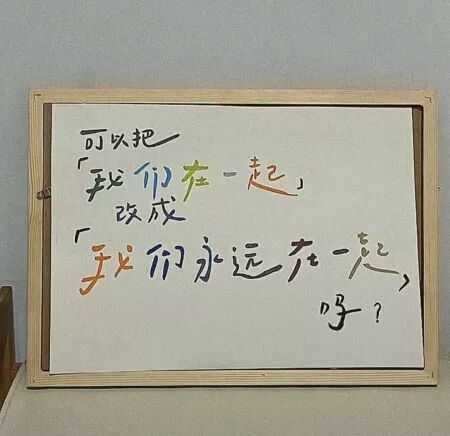 可以把
「我们在一起」
改成
「我们永远在一起」
吗?